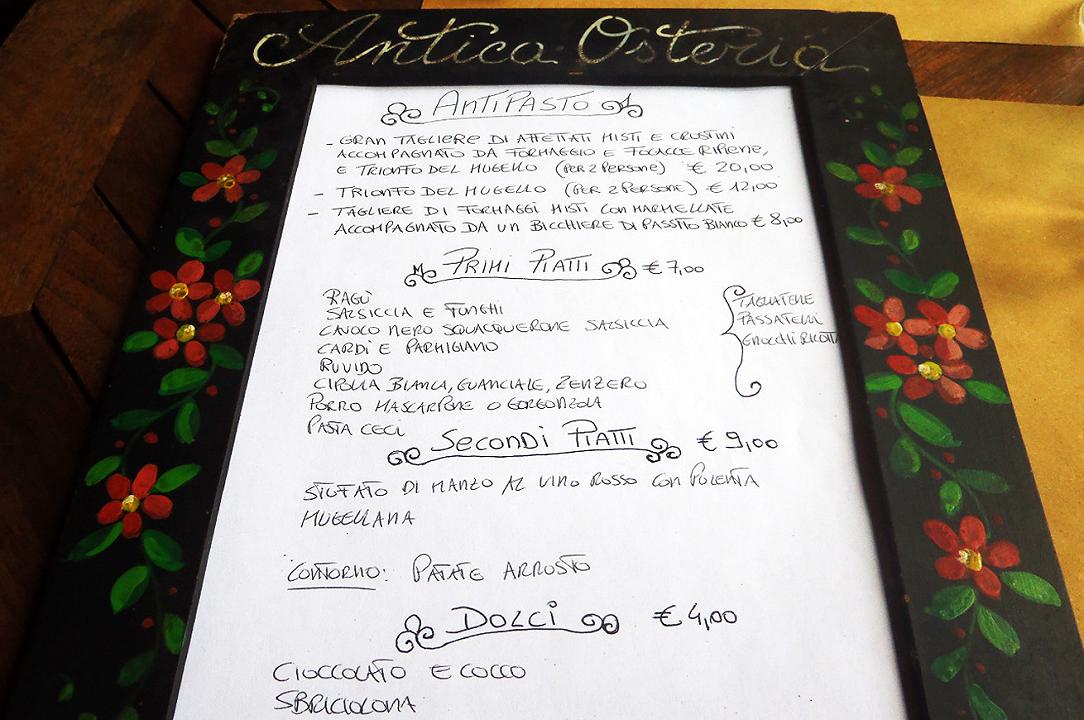 Antica Osteria
ANTIPASTO
- GRAN TAGLIERE DI AFFETTATI MISTI E CROSTINI
ACCOMPAGNATO DA FORMAGGIO E FOCACCE RIPIENE,
E TRIONFO DEL MUGELLO (PER 2 PERSONE) € 20,00
- TRIONFO DEL MUGELLO (PER 2 PERSONE) € 12,00
- TAGLIERE DI FORMAGGI MISTI CON MARMELLATE
ACCOMPAGNATO DA UN BICCHIERE DI PASSITO BIANCO € 8,00
PRIMI PIATTI € 7,00
RAGÙ
SALSICCIA E FUNGHI
CAVOLO NERO SQUACQUERONE SALSICCIA
CARDI E PARMIGIANO
RUVIDO
CIPOLLA BIANCA, GUANCIALE, ZENZERO
PORRO MASCARPONE O GORGONZOLA
PASTA CECI
TAGLIATELLE
PASSATELLI
GNOCCHI RICOTTA
SECONDI PIATTI € 9,00
STUFATO DI MANZO AL VINO ROSSO CON POLENTA
MUGELLANA
CONTORNO: PATATE ARROSTO
DOLCI € 4,00
CIOCCOLATO E COCCO
SBRICIOLONA